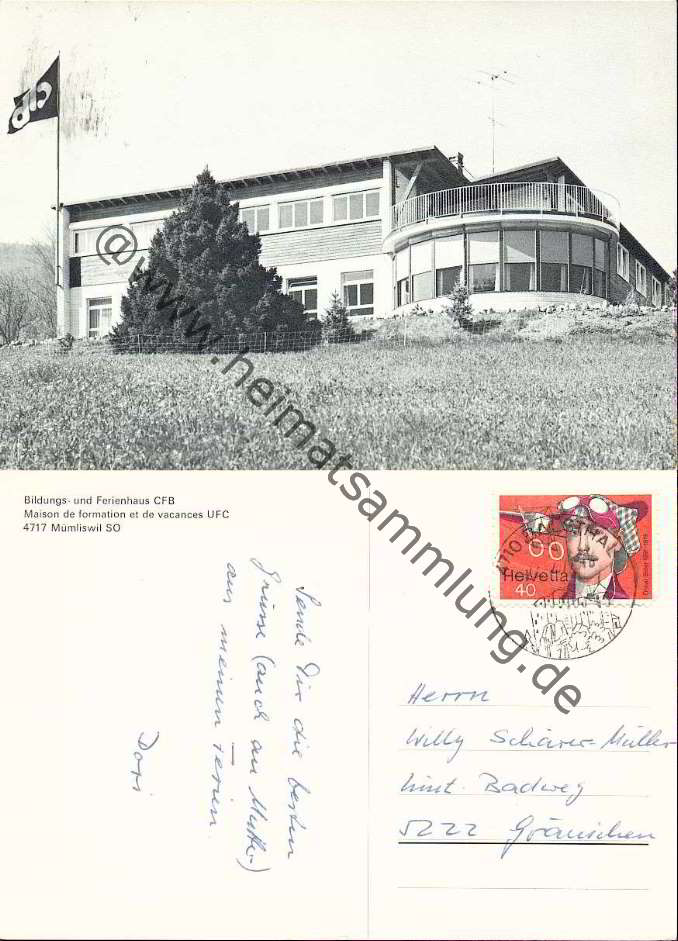 cfb
@www.heimatsammlung.de
Bildungs- und Ferienhaus CFB
Maison de formation et de vacances UFC
4717 Mümliswil SO
4710 BALSTHAL
Helvetia
40
Sende Dir die besten
Grüsse (auch an Mutter)
aus meinen Ferien.
Dori
Herrn
Willy Schärer-Müller
hint. Badweg
5222 Gränichen